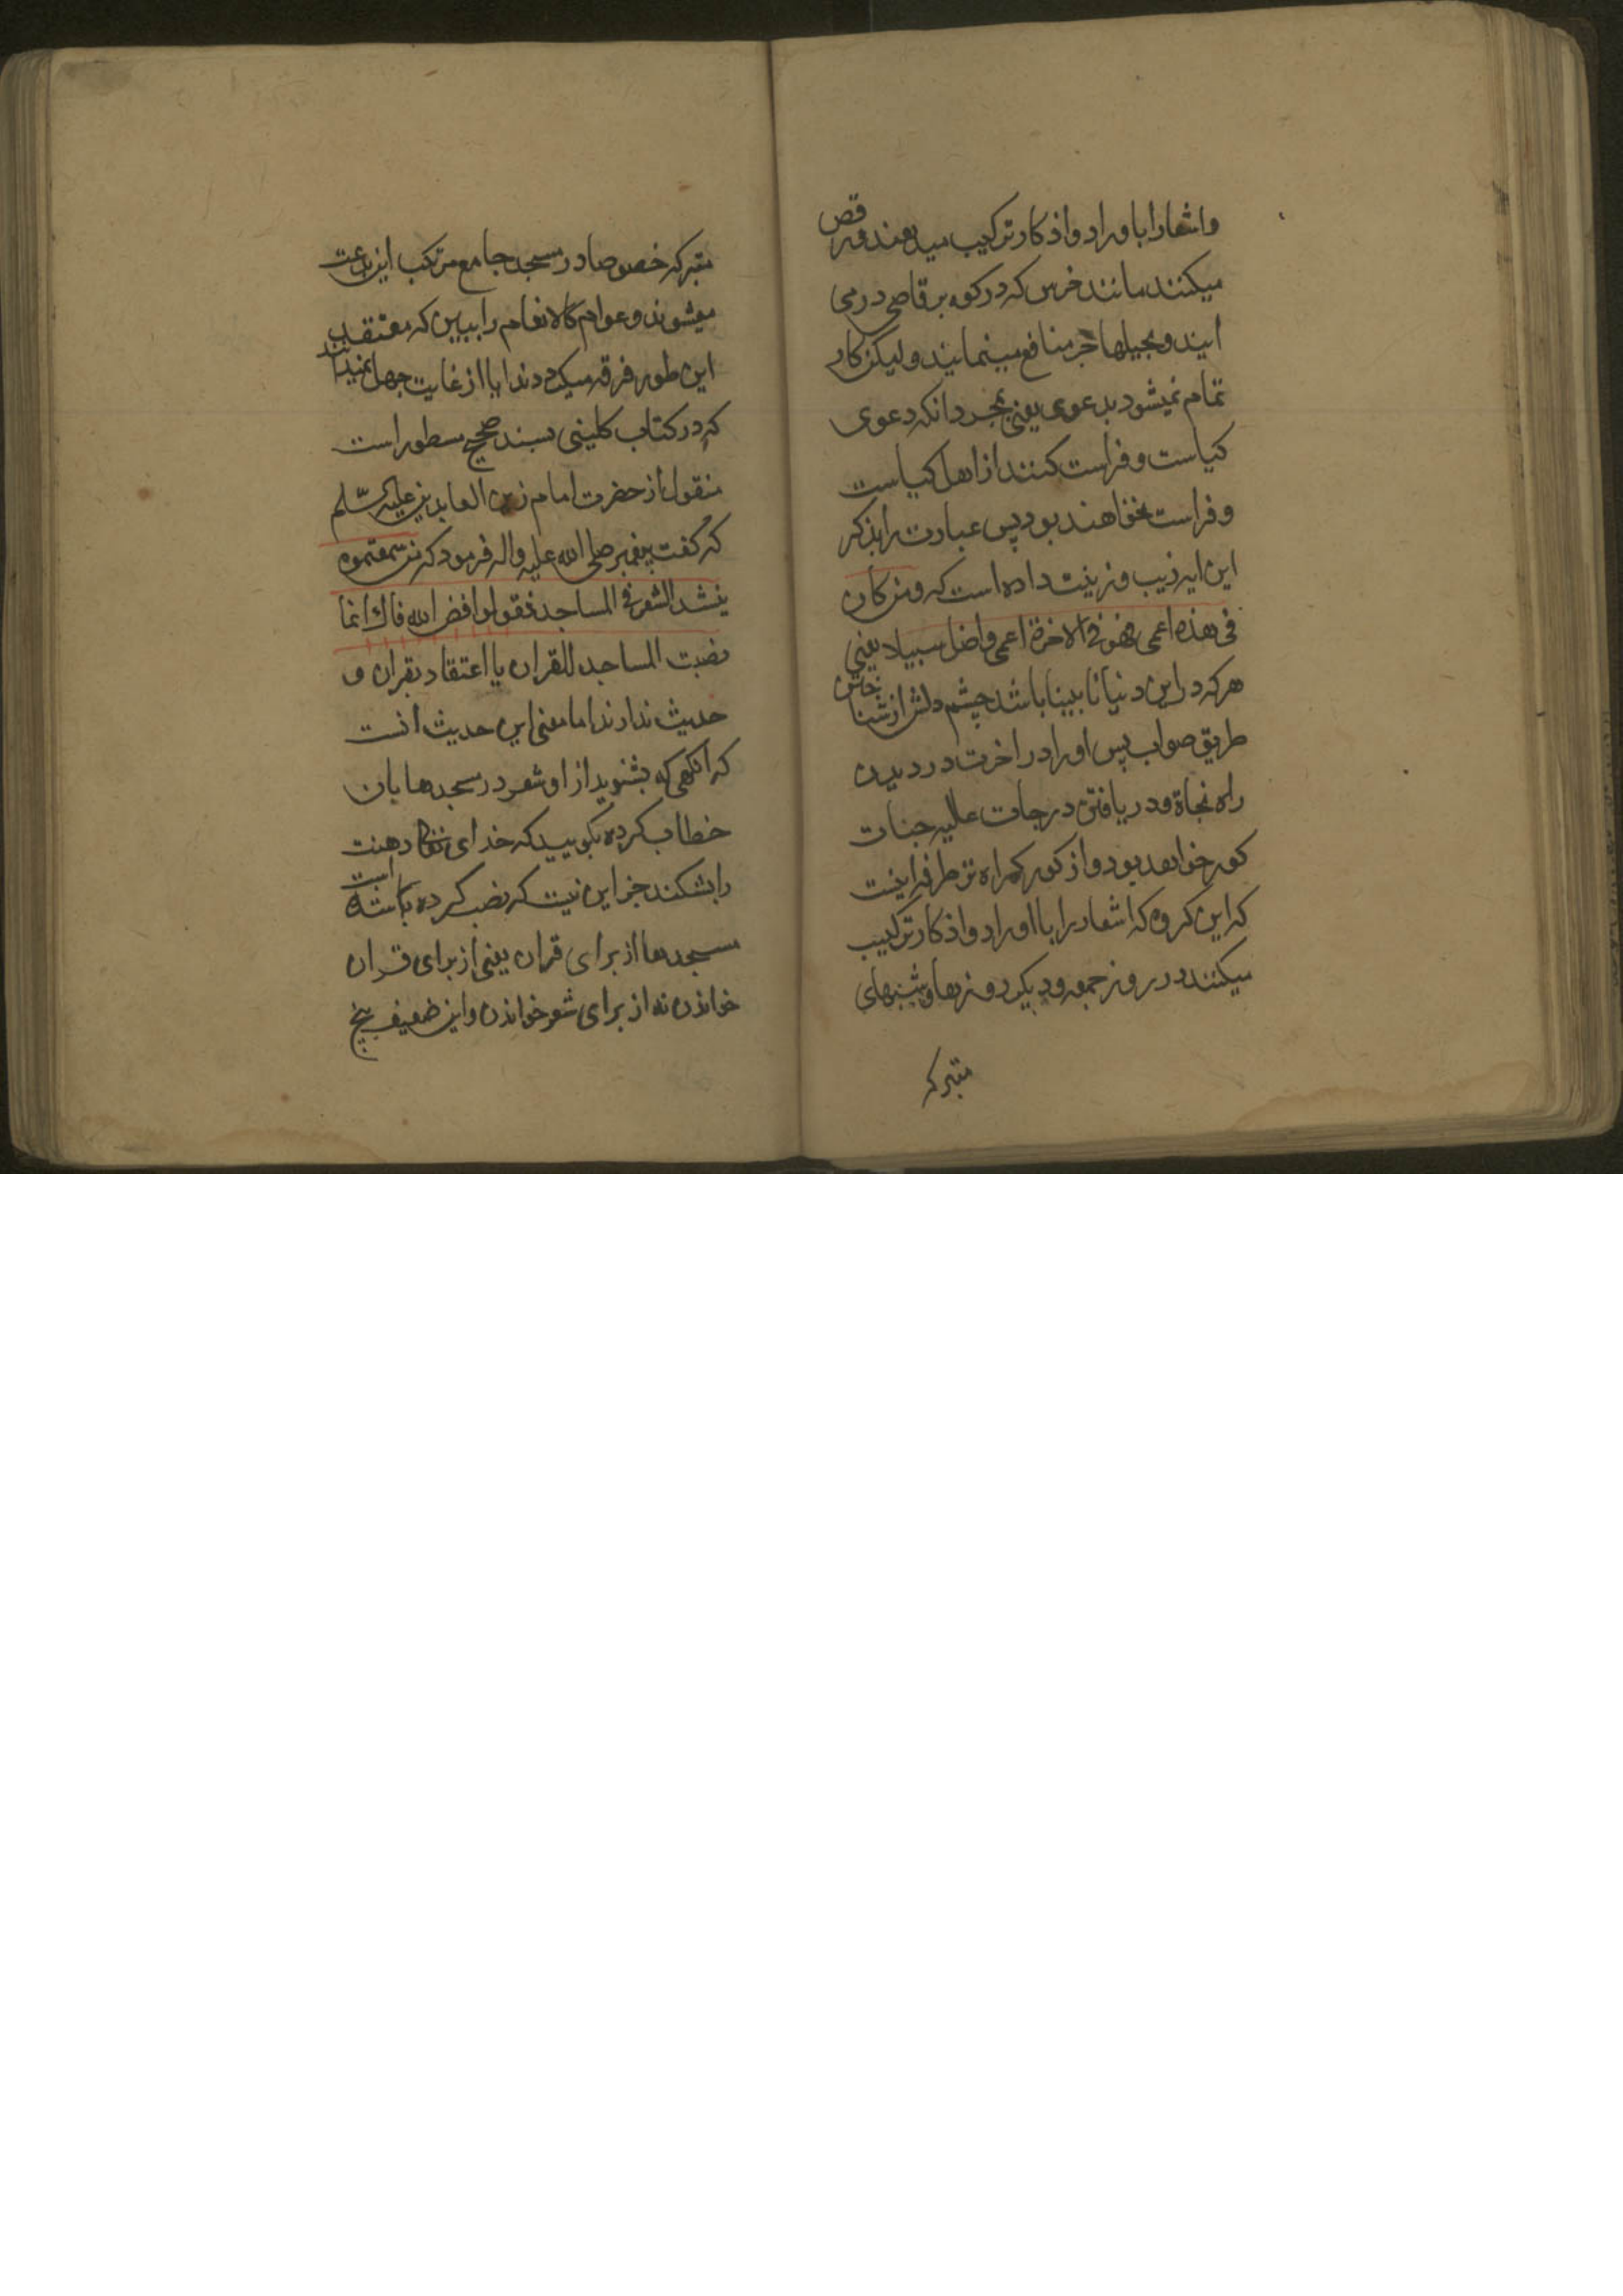 واشعار را باوراد واذکار ترکیب میدهند ورقص
میکنند مانند خرس که در کوه برقاصی در می
ایند وبحیلها جر منافع مینمایند ولیکن کار
تمام نمیشود بدعوی یعنی بمجرد انکه دعوی
کیاست وفراست کنند از اهل کیاست
وفراست نخواهند بود پس عبارت را بذکر
این ایه زیب وزینت داده است که ومن کان
فی هذه اعمی فهو فی الاخرة اعمی واضل سبیلا یعنی
هرکه در این دنیا نابینا باشد چشم دلش از شناختن
طریق صواب پس او را در اخرت در دیدن
راه نجاة ودر یافتن درجات عالیه جنات
کور خواهد بود واز کور کمراه تر طرفه اینست
که این کروه که اشعار را با اوراد واذکار ترکیب
میکنند در روز جمعه ودیکر روزها وشبهای
متبرکه
متبرکه خصوصا در مسجد جامع مرتکب این بدعت
میشوند وعوام کالانعام را ببین که معتقد
این طور فرقه میکردند ایا از غایت جهل نمیدانند
که در کتاب کلینی بسند صحیح مسطور است
منقول از حضرت امام زین العابدین علیه السّلم
که کفت پیغمبر صلی الله علیه واله فرمود که من سمعتموه
ینشد الشعر فی المساجد فقولوا فض الله فاك انما
نصبت المساجد للقران یا اعتقاد بقران و
حدیث ندارند اما معنی این حدیث انست
که انکهی که بشنوید از او شعر در مسجدها بان
خطاب کرده بکویید که خدای تعالی دهنت
را بشکند جز این نیست که نصب کرده است
مسجدها از برای قران یعنی از برای قران
خواندن نه از برای شعر خواندن واین ضعیف